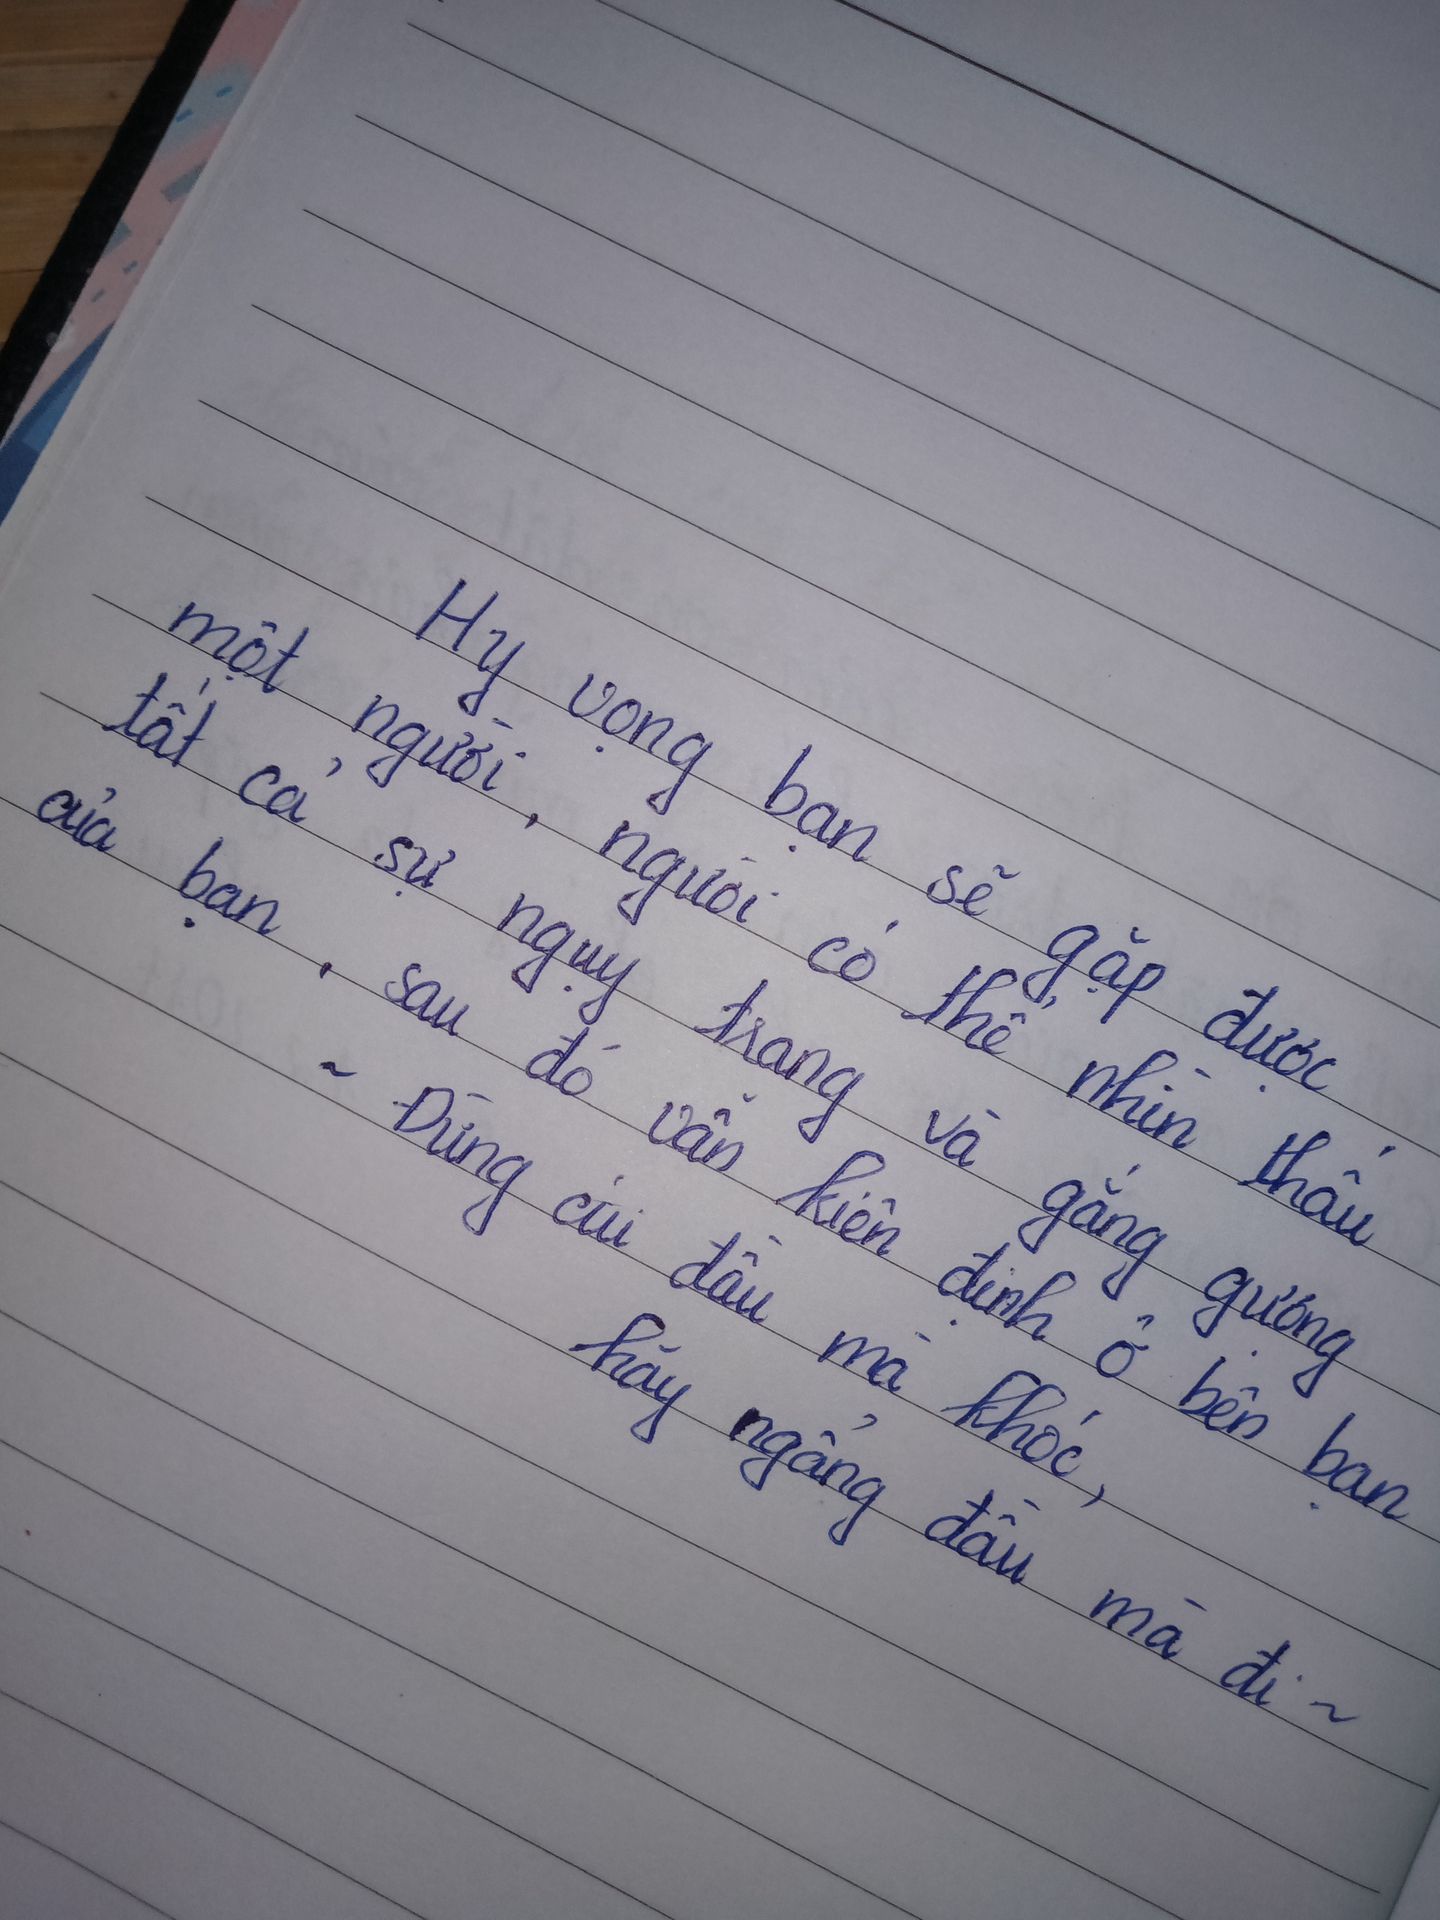 Hy vọng bạn sẽ gặp được
một người, người có thể nhìn thấu
tất cả sự ngụy trang và gắng gượng
của bạn, sau đó vẫn kiên định ở bên bạn
~ Đừng cúi đầu mà khóc,
hãy ngẩng đầu mà đi ~